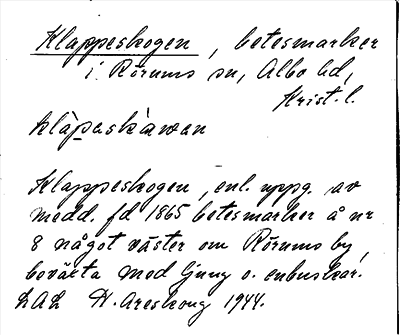 Klappeskogen, betesmarker
i Rörums sn, Albo hd,
Krist. l.
klàpaskàwan
Klappeskogen, enl. uppg. av
medd. fd 1865 betesmarker å nr
8 något väster om Rörums by,
boväxta med ljung o. enbuskar.
LAL H. Areskoug 1944.